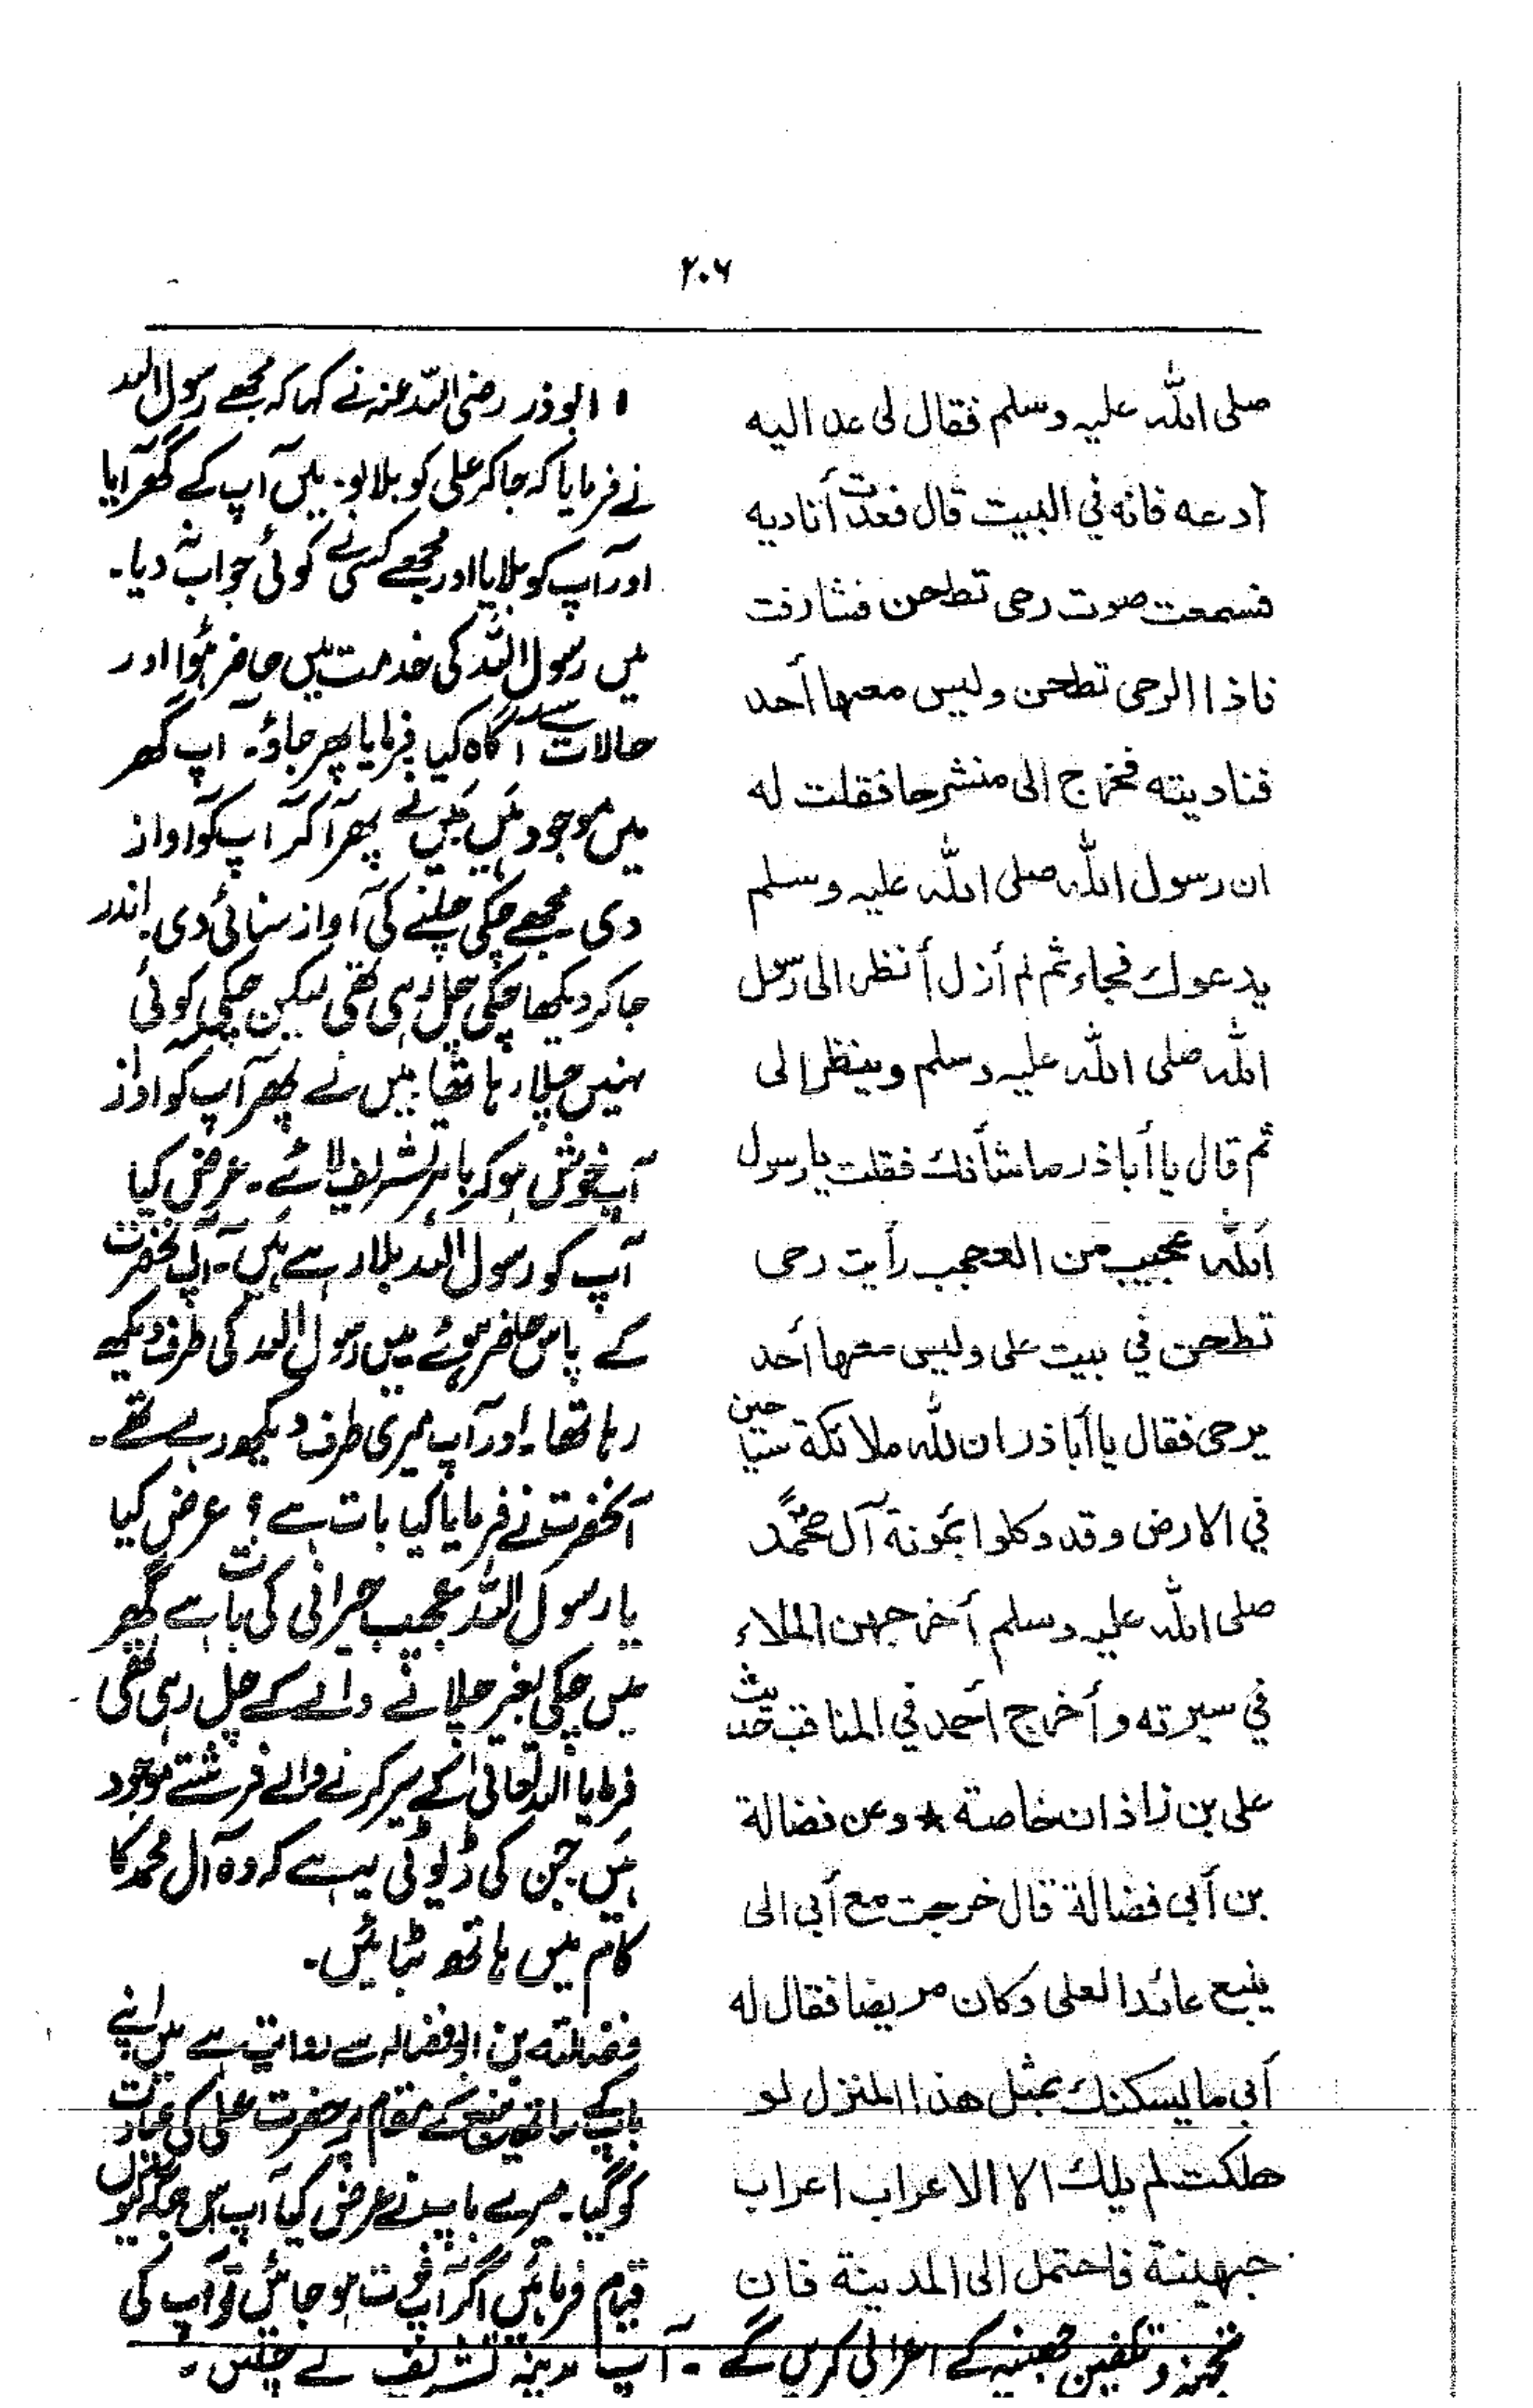 ۲۰۶
صلی الله علیه وسلم فقال لی عد الیه
أدعه فانه في البیت قال فعدت أنادیه
فسمعت صوت رحی تطحن فشارفت
فاذا الرحی تطحن ولیس معها أحد
فنادیته فخرج الی منشرحا فقلت له
ان رسول الله صلی الله علیه وسلم
یدعوك فجاء ثم لم أزل أنظر الی رسول
الله صلی الله علیه وسلم وینظر الی
ثم قال یا أباذر ما شأنك فقلت یا رسول
الله عجیب من العجب رأیت رحی
تطحن في بیت علی ولیس معها أحد
یرحی فقال یا أباذر ان لله ملائكة سیاحین
في الارض وقد وكلوا بمونة آل محمد
صلی الله علیه وسلم أخرجهن الملاء
في سیرته وأخرج أحمد في المناقب حدیث
علی بن زاذان خاصة * وعن فضالة
بن أبي فضالة قال خرجت مع أبي الی
ینبع عائدا لعلی وكان مریضا فقال له
أبي ما یسكنك بمثل هذا المنزل لو
هلكت لم یلك الا الاعراب اعراب
جهینة فاحتمل الی المدینة فان
ابوذر رضی اللہ عنہ نے کہا کہ مجھے رسول اللہ
نے فرمایا کہ جا کر علی کو بلا لو۔ میں آپ کے گھر آیا
اور آپ کو بلایا اور مجھے کسی نے کوئی جواب نہ دیا۔
میں رسول اللہ کی خدمت میں حاضر ہوا اور
حالات سے آگاہ کیا فرمایا پھر جاؤ۔ آپ گھر
میں موجود ہیں میں نے پھر آ کر آپ کو آواز
دی مجھے چکی چلنے کی آواز سنائی دی۔ اندر
جا کر دیکھا چکی چل رہی تھی لیکن چکی کوئی
نہیں چلا رہا تھا میں نے پھر آپ کو آواز
آپ خوش ہو کر باہر تشریف لائے۔ عرض کیا
آپ کو رسول اللہ بلا رہے ہیں۔ آپ آنحضرت
کے پاس حاضر ہوئے میں رسول اللہ کی طرف دیکھ
رہا تھا۔ اور آپ میری طرف دیکھ رہے تھے۔
آنحضرت نے فرمایا کیا بات ہے؟ عرض کیا
یا رسول اللہ عجیب حیرانی کی بات ہے گھر
میں چکی بغیر چلانے والے کے چل رہی تھی
فرمایا اللہ تعالی کے سیر کرنے والے فرشتے موجود
ہیں جن کی ڈیوٹی یہ ہے کہ وہ آل محمد کا
کام میں ہاتھ بٹائیں۔
فضالتہ بن ابو فضالہ سے روایت ہے میں اپنے
باپ کے ساتھ ینبع کے مقام پر حضرت علی کی عیادت
کو گیا۔ میرے باپ نے عرض کیا آپ اس جگہ کیوں
قیام فرما ہیں اگر آپ فوت ہو جائیں تو آپ کی
تجہیز و تکفین جھینہ کے اعرابی کریں گے۔ آپ مدینہ تشریف لے چلیں۔